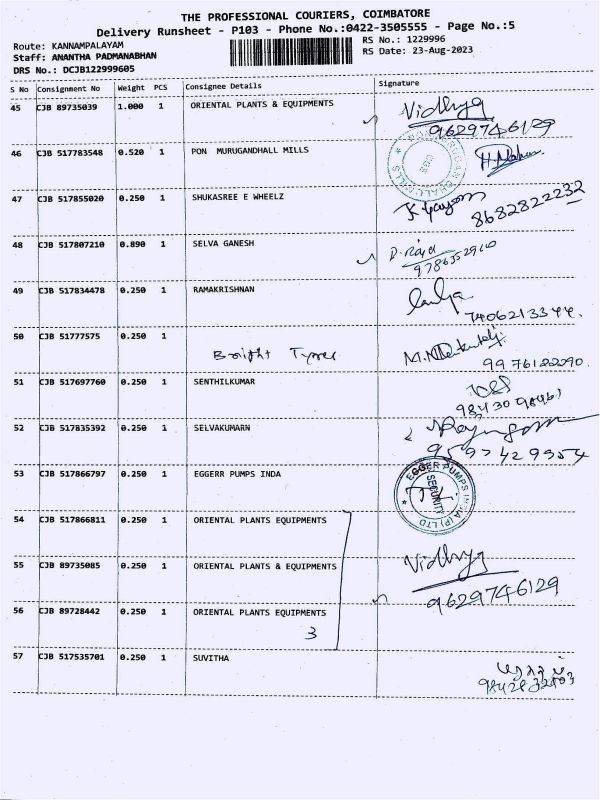 THE PROFESSIONAL COURIERS, COIMBATORE
Delivery Runsheet - P103 - Phone No.:0422-3505555 - Page No.:5
Route: KANNAMPALAYAM
RS No.: 1229996
Staff: ANANTHA PADMANABHAN
RS Date: 23-Aug-2023
DRS No.: DCJB122999605
S No Consignment No Weight PCS Consignee Details Signature
45 CJB 89735039 1.000 1 ORIENTAL PLANTS & EQUIPMENTS Vidhya
9629746129
46 CJB 517783548 0.520 1 PON MURUGANDHALL MILLS
47 CJB 517855020 0.250 1 SHUKASREE E WHEELZ
8682822232
48 CJB 517807210 0.890 1 SELVA GANESH D. Raja
49 CJB 517834478 0.250 1 RAMAKRISHNAN
7406213344.
50 CJB 51777575 0.250 1
Bright Tyres
9976182090.
51 CJB 517697760 0.250 1 SENTHILKUMAR
52 CJB 517835392 0.250 1 SELVAKUMARN
9597429954
53 CJB 517866797 0.250 1 EGGERR PUMPS INDA
EGGER PUMPS INDIA (P) LTD
SECURITY
54 CJB 517866811 0.250 1 ORIENTAL PLANTS EQUIPMENTS
55 CJB 89735085 0.250 1 ORIENTAL PLANTS & EQUIPMENTS Vidhya
9629746129
56 CJB 89728442 0.250 1 ORIENTAL PLANTS EQUIPMENTS
3
57 CJB 517535701 0.250 1 SUVITHA